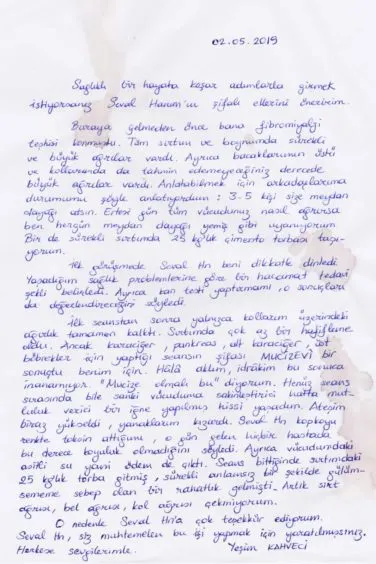 02.05.2019
Sağlıklı bir hayata koşar adımlarla girmek
istiyorsanız Seval Hanım'ın şifalı ellerini öneririm.
Buraya gelmeden önce bana fibromiyalji
teşhisi konmuştu. Tüm sırtım ve boynumda sürekli
ve büyük ağrılar vardı. Ayrıca bacaklarımın üstü
ve kollarımda da tahmin edemeyeceğiniz derecede
büyük ağrılar vardı. Anlatabilmek için arkadaşlarıma
durumumu şöyle anlatıyordum : 3-5 kişi size meydan
dayağı atsın. Ertesi gün tüm vücudunuz nasıl ağrırsa
ben hergün meydan dayağı yemiş gibi uyanıyorum.
Bir de sürekli sırtımda 25 kg'lık çimento torbası taşı-
yorum.
İlk görüşmede Seval Hn beni dikkatle dinledi.
Yaşadığım sağlık problemlerine göre bir hacamat tedavi
şekli belirledi. Ayrıca kan testi yaptırmamı, o sonuçları
da değerlendireceğini söyledi.
İlk seanstan sonra yalnızca kollarım üzerindeki
ağırlık tamamen kalktı. Sırtımda çok az bir hafifleme
oldu. Ancak karaciğer, pankreas, alt karaciğer, üst
böbrekler için yaptığı seansın şifası MUCİZEVİ bir
sonuçtu benim için. Hâlâ aklım, idrâkim bu sonuca
inanamıyor. "Mucize olmalı bu" diyorum. Henüz seans
sırasında bile sanki vücuduma sakinleştirici hatta mut-
luluk verici bir iğne yapılmış hissi yaşadım. Ateşim
biraz yükseldi, yanaklarım kızardı. Seval Hn kapkoyu
renkte toksin attığımı, o gün gelen hiçbir hastada
bu derece koyuluk olmadığını söyledi. Ayrıca vücudumdaki
asitli su yani ödem de çıktı. Seans bittiğinde sırtımdaki
25 kg'lık torba gitmiş, sürekli anlamsız bir şekilde gülüm-
sememe sebep olan bir rahatlık gelmişti. Artık sırt
ağrısı, bel ağrısı, kol ağrısı çekmiyorum.
O nedenle Seval Hn'a çok teşekkür ediyorum.
Seval Hn, siz muhtemelen bu işi yapmak için yaratılmışsınız.
Herkese sevgilerimle. Yeşim KAHVECİ